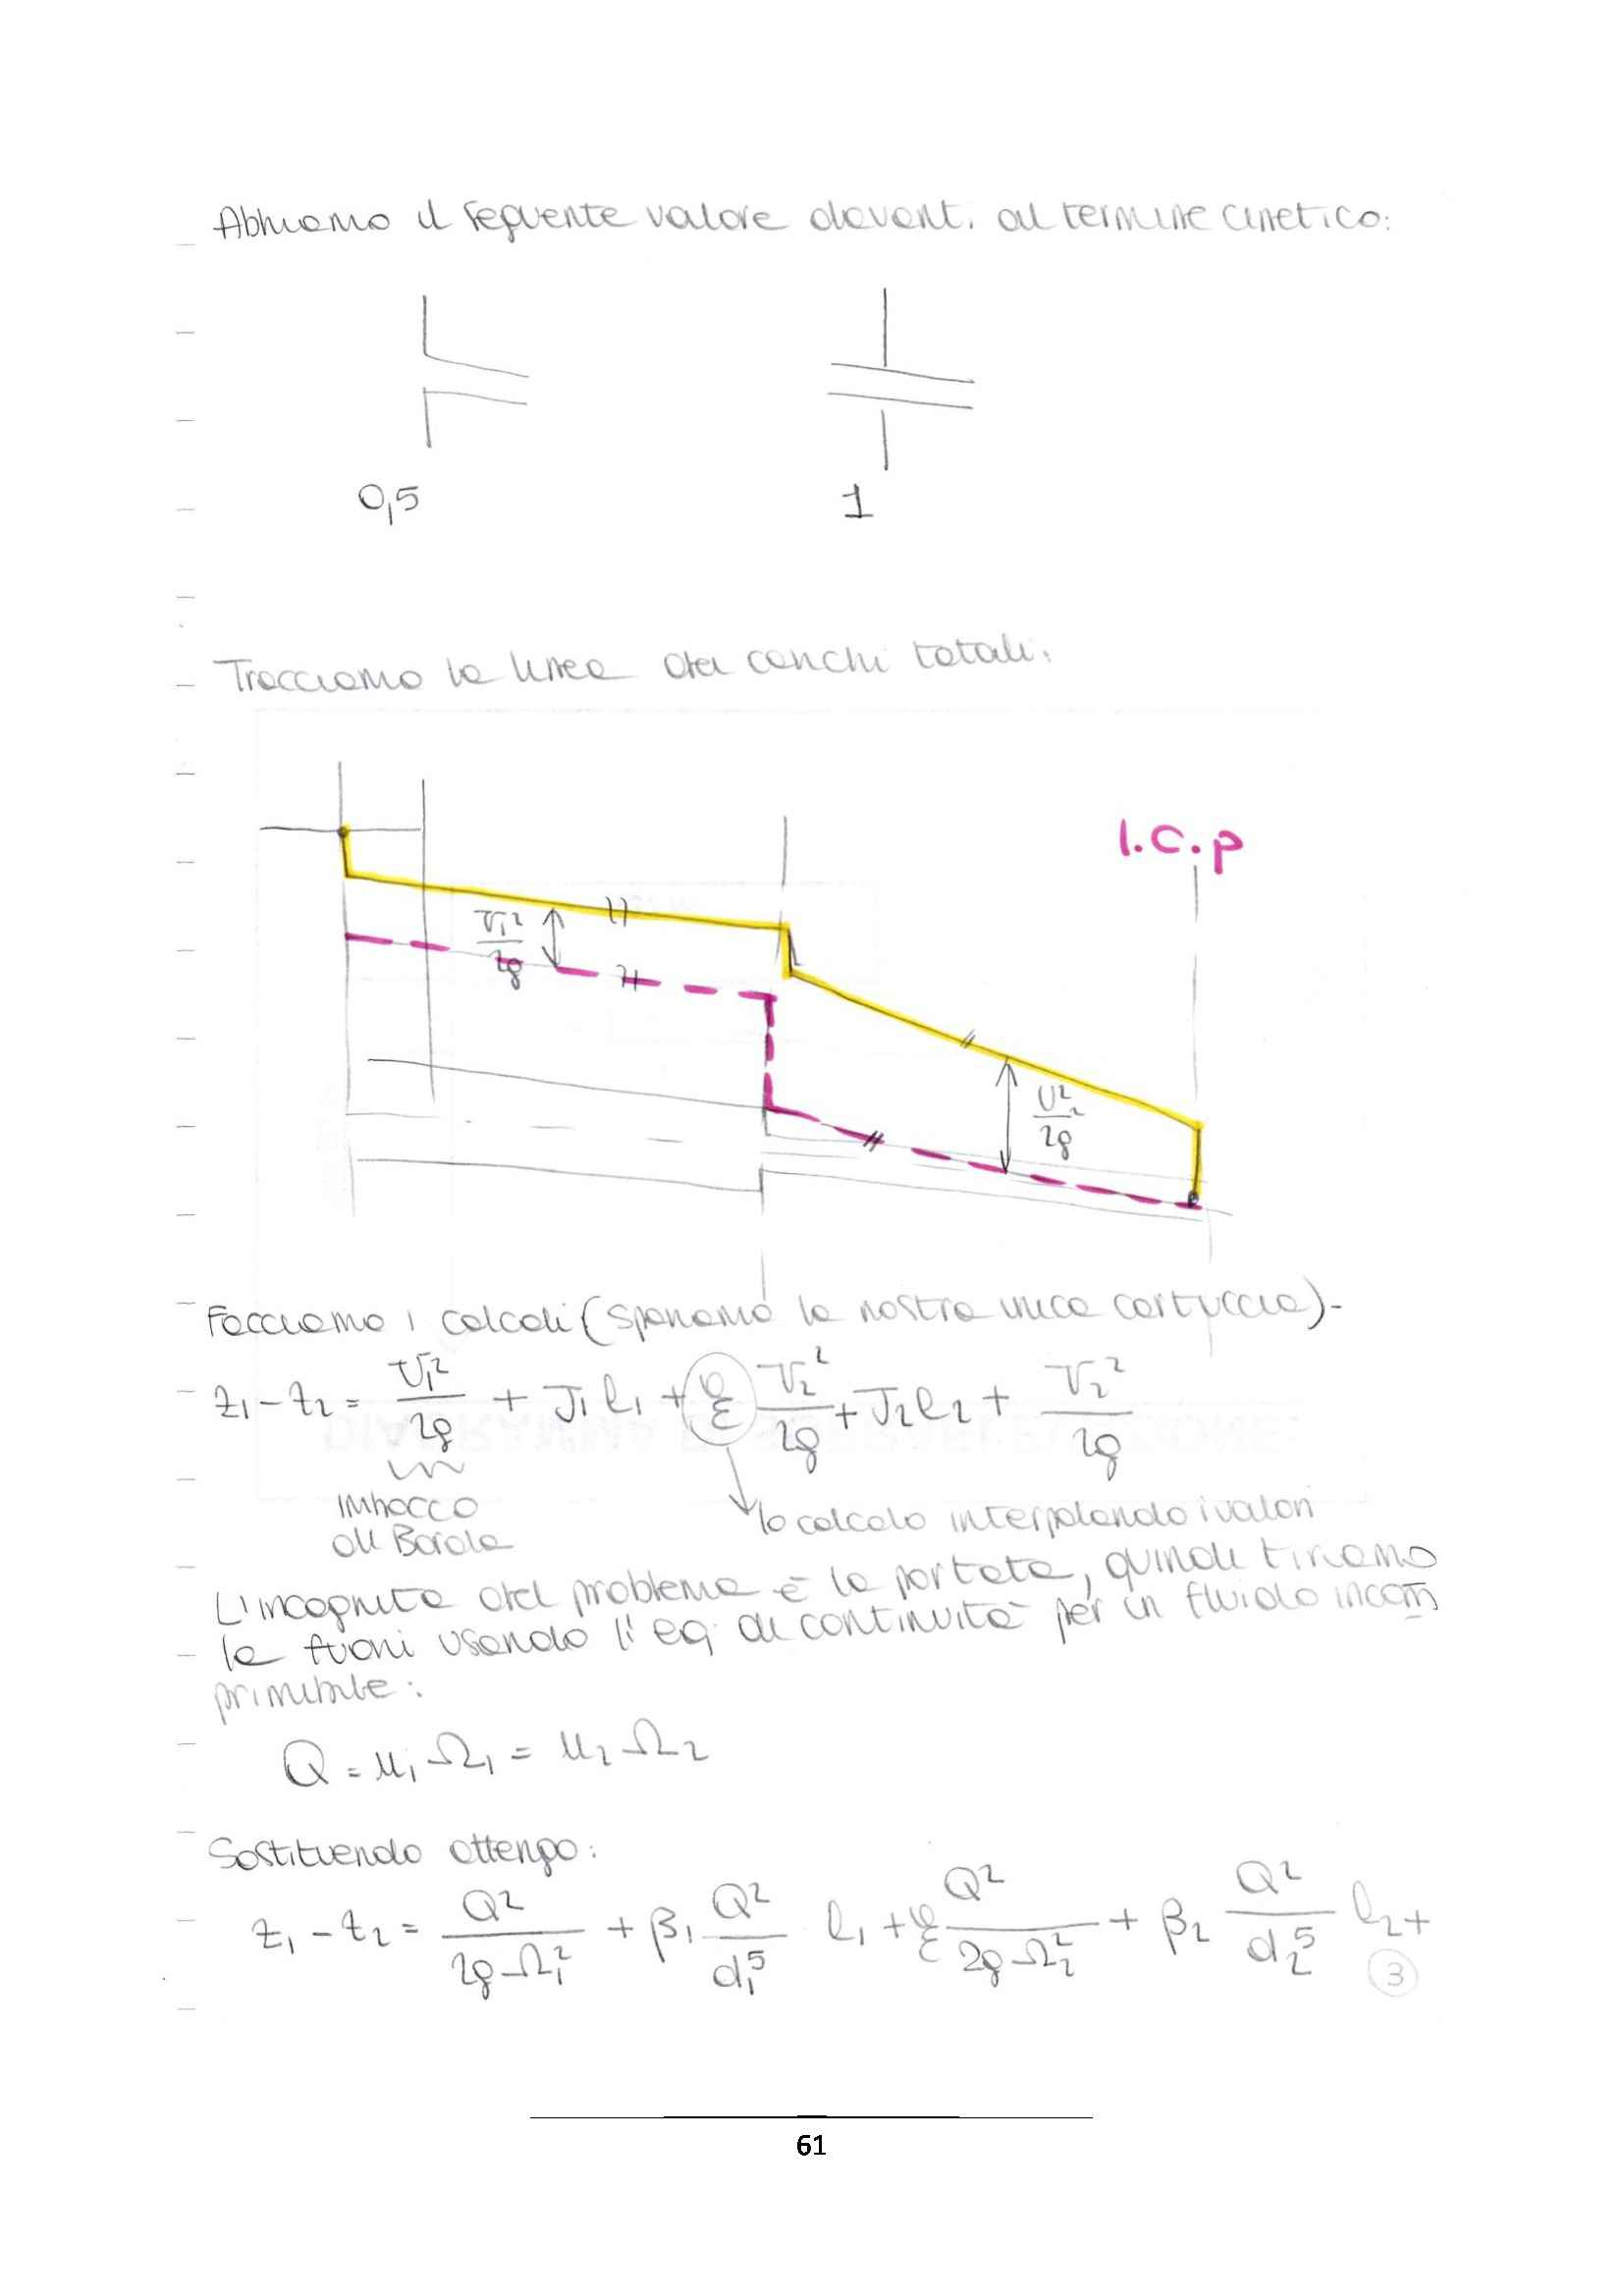 Abbiamo il seguente valore davanti al termine cinetico:
0,5 1
Tracciamo la linea dei carichi totali:
l.c.p
U₁²/2g
U₂²/2g
Facciamo i calcoli (spariamo la nostra unica cartuccia)-
z₁-z₂ = U₁²/2g + J₁l₁ + ξ U₂²/2g + J₂l₂ + U₂²/2g
imbocco
alla Borda
lo calcolo interpolando i valori
L'incognita del problema è la portata, quindi tiriamo
la fuori usando l'eq. di continuità per un fluido incom
primibile:
Q = u₁Ω₁ = u₂Ω₂
Sostituendo ottengo:
z₁-z₂ = Q²/2gΩ₁² + β₁ Q²/d₁⁵ l₁ + ξ Q²/2gΩ₂² + β₂ Q²/d₂⁵ l₂ +
3
61